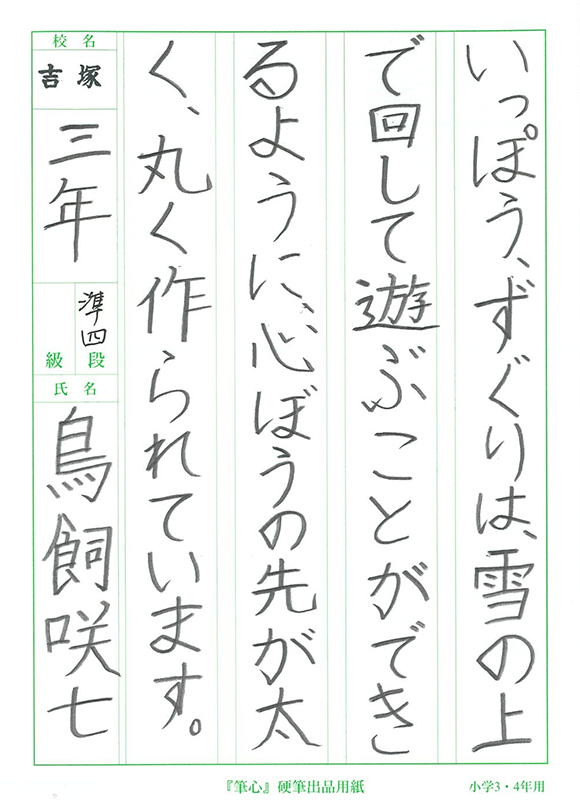 いっぽう、ずぐりは、雪の上
で回して遊ぶことができ
るように、心ぼうの先が太
く、丸く作られています。
校名
吉塚
三年
準四
級段
氏名
鳥飼咲七
『筆心』硬筆出品用紙
小学3・4年用